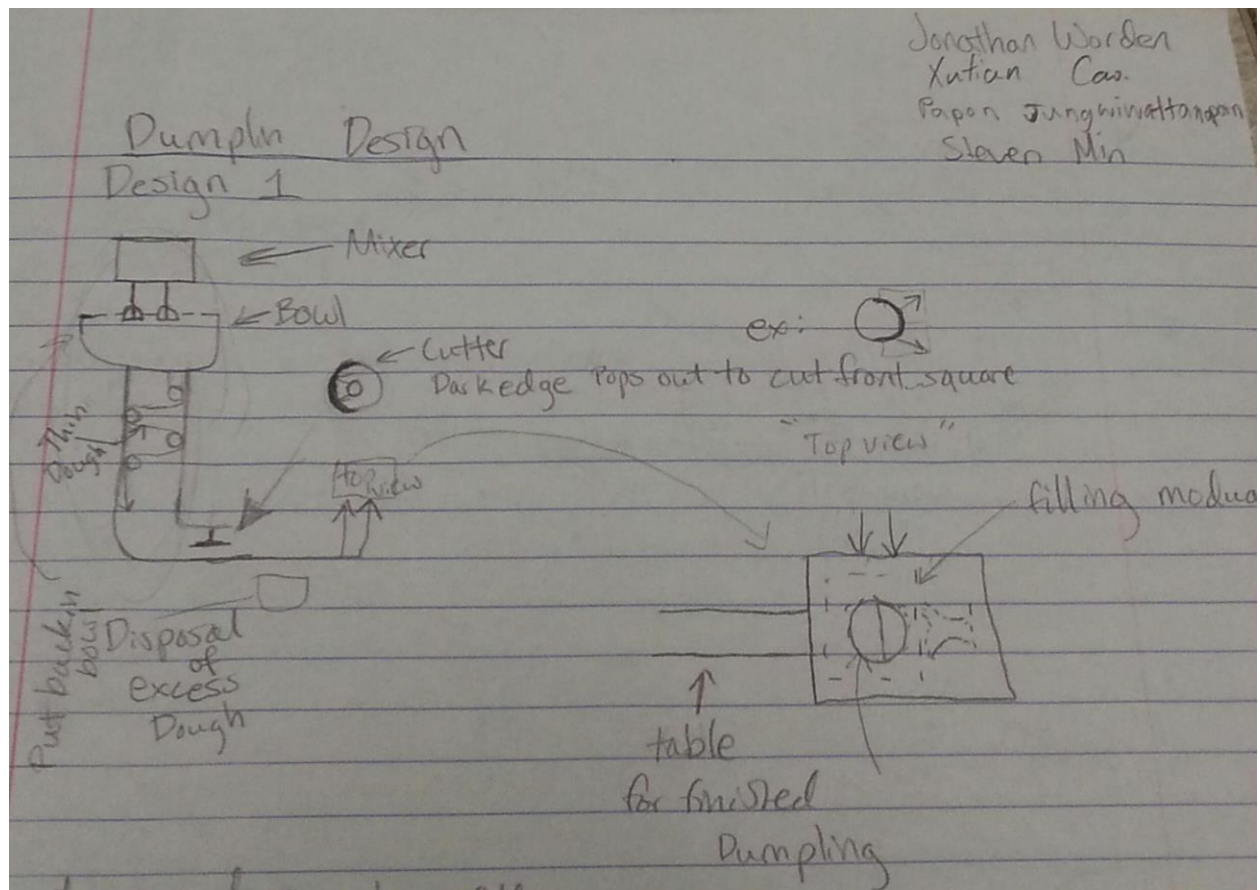 Jonathan Worden
Xutian Cao.
Papon
Steven Min
Dumplin Design
Design 1
Mixer
Bowl
Cutter
Dark edge Pops out to cut front square
ex:
Thin
Dough
top
view
"Top view"
filling modua
Put back in
bowl
Disposal
of
excess
Dough
table
for finished
Dumpling